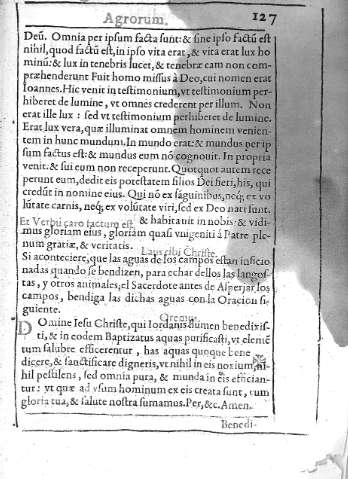 Agrorum. 127
Deū. Omnia per ipsum facta sunt: & sine ipso factū est
nihil, quod factū est, in ipso vita erat, & vita erat lux ho
minū: & lux in tenebris lucet, & tenebræ eam non com-
præhenderunt Fuit homo missus à Deo, cui nomen erat
Ioannes. Hic venit in testimonium, vt testimonium per-
hiberet de lumine, vt omnes crederent per illum. Non
erat ille lux: sed vt testimonium perhiberet de lumine.
Erat lux vera, quæ illuminat omnem hominem venien-
tem in hunc mundum. In mundo erat: & mundus per ip
sum factus est: & mundus eum nō cognouit. In propria
venit: & sui eum non receperunt. Quotquot autem rece
perunt eum, dedit eis potestatem filios Dei fieti, his, qui
credūt in nomine eius. Qui nō ex sāguinibus, neq; ex vo
lūtate carnis, neq; ex volūtate viri, sed ex Deo nati sunt.
Et Verbū caro factum est, & habitauit in nobis: & vidi-
mus gloriam eius, gloriam quasi vnigeniti à Patre ple-
num gratiæ, & veritatis. Laus tibi Christe.
Si aconteciere, que las aguas de los campos estan inficio
nadas quando se bendizen, para echar dellos las langos-
tas, y otros animales, el Sacerdote antes de Asperjar los
campos, bendiga las dichas aguas con la Oracion si-
guiente. Oremus.
DOmine Iesu Christe, qui Iordanis flumen benedixis-
ti, & in eodem Baptizatus aquas purificasti, vt elemē
tum salubre efficerentur, has aquas quoque bene
dicere, & sanctificare digneris, vt nihil in eis noxium, ni
hil pestilens, sed omnia pura, & munda in eis efician-
tur: vt quæ ad vsum hominum ex eis creata sunt, cum
gloria tua, & salute nostra sumamus. Per, &c. Amen.
Benedi-